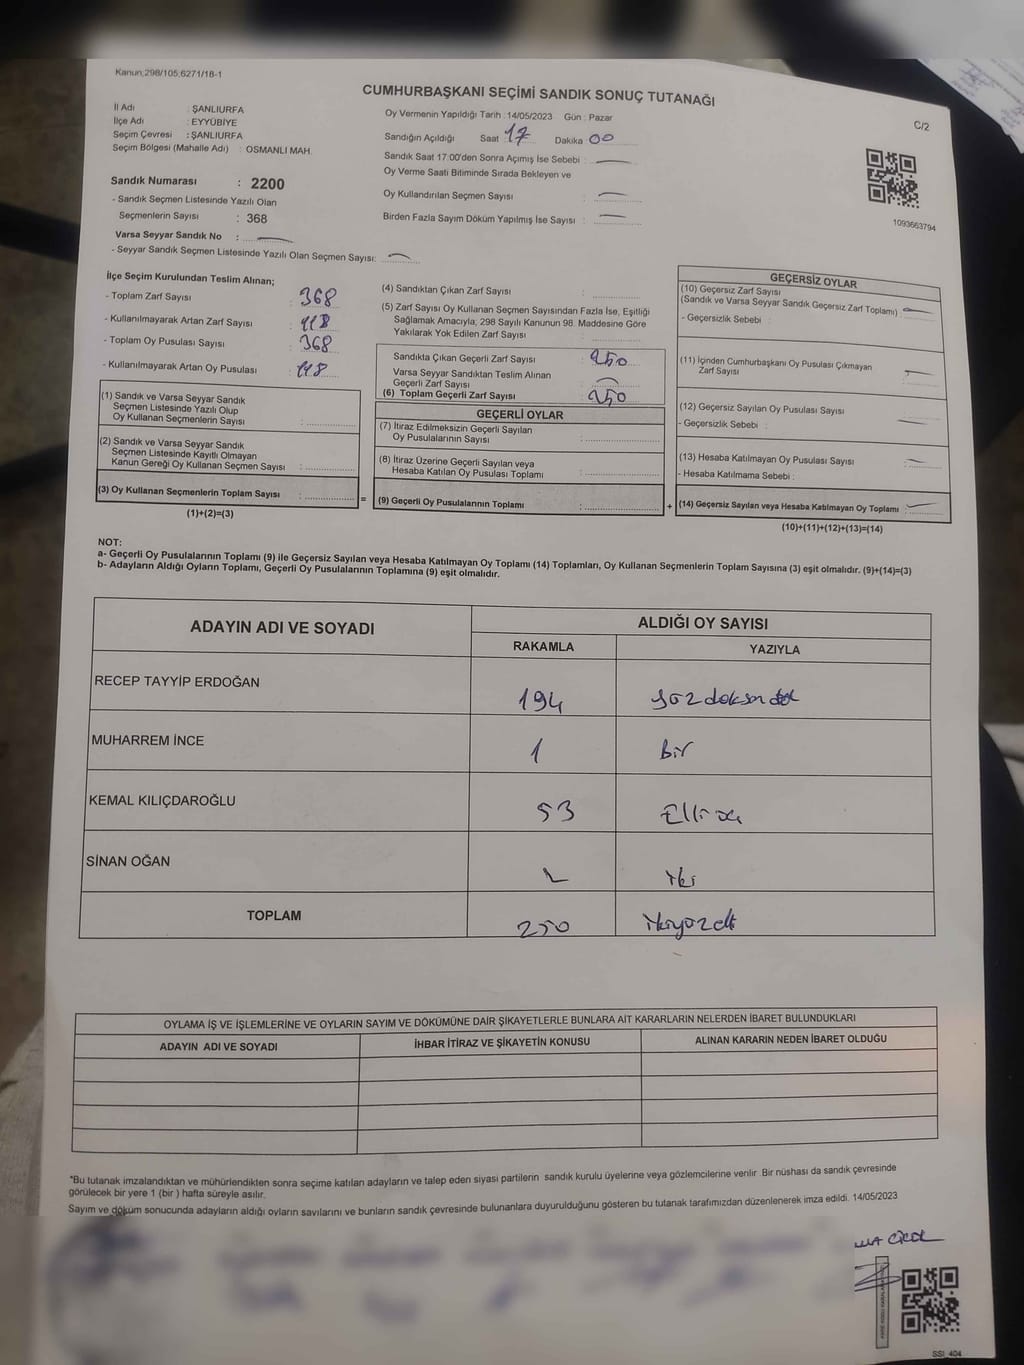 Kanun;298/105;6271/18-1
CUMHURBAŞKANI SEÇİMİ SANDIK SONUÇ TUTANAĞI
C/2
İl Adı : ŞANLIURFA
İlçe Adı : EYYÜBİYE
Seçim Çevresi : ŞANLIURFA
Seçim Bölgesi (Mahalle Adı) : OSMANLI MAH.
Oy Vermenin Yapıldığı Tarih : 14/05/2023 Gün : Pazar
Sandığın Açıldığı Saat : 17 Dakika : 00
Sandık Saat 17:00'den Sonra Açımış İse Sebebi :
Oy Verme Saati Bitiminde Sırada Bekleyen ve
Oy Kullandırılan Seçmen Sayısı :
Birden Fazla Sayım Döküm Yapılmış İse Sayısı :
1093663794
Sandık Numarası : 2200
- Sandık Seçmen Listesinde Yazılı Olan
Seçmenlerin Sayısı : 368
Varsa Seyyar Sandık No :
- Seyyar Sandık Seçmen Listesinde Yazılı Olan Seçmen Sayısı:
İlçe Seçim Kurulundan Teslim Alınan;
- Toplam Zarf Sayısı : 368
- Kullanılmayarak Artan Zarf Sayısı : 118
- Toplam Oy Pusulası Sayısı : 368
- Kullanılmayarak Artan Oy Pusulası : 118
(1) Sandık ve Varsa Seyyar Sandık
Seçmen Listesinde Yazılı Olup
Oy Kullanan Seçmenlerin Sayısı :
(2) Sandık ve Varsa Seyyar Sandık
Seçmen Listesinde Kayıtlı Olmayan
Kanun Gereği Oy Kullanan Seçmen Sayısı :
(3) Oy Kullanan Seçmenlerin Toplam Sayısı : =
(1)+(2)=(3)
(4) Sandıktan Çıkan Zarf Sayısı :
(5) Zarf Sayısı Oy Kullanan Seçmen Sayısından Fazla İse, Eşitliği
Sağlamak Amacıyla, 298 Sayılı Kanunun 98. Maddesine Göre
Yakılarak Yok Edilen Zarf Sayısı :
Sandıkta Çıkan Geçerli Zarf Sayısı : 250
Varsa Seyyar Sandıktan Teslim Alınan
Geçerli Zarf Sayısı :
(6) Toplam Geçerli Zarf Sayısı : 250
GEÇERLİ OYLAR
(7) İtiraz Edilmeksizin Geçerli Sayılan
Oy Pusulalarının Sayısı :
(8) İtiraz Üzerine Geçerli Sayılan veya
Hesaba Katılan Oy Pusulası Toplamı :
(9) Geçerli Oy Pusulalarının Toplamı : +
GEÇERSİZ OYLAR
(10) Geçersiz Zarf Sayısı
(Sandık ve Varsa Seyyar Sandık Geçersiz Zarf Toplamı) :
- Geçersizlik Sebebi :
(11) İçinden Cumhurbaşkanı Oy Pusulası Çıkmayan
Zarf Sayısı :
(12) Geçersiz Sayılan Oy Pusulası Sayısı :
- Geçersizlik Sebebi :
(13) Hesaba Katılmayan Oy Pusulası Sayısı :
- Hesaba Katılmama Sebebi :
(14) Geçersiz Sayılan veya Hesaba Katılmayan Oy Toplamı :
(10)+(11)+(12)+(13)=(14)
NOT:
a- Geçerli Oy Pusulalarının Toplamı (9) ile Geçersiz Sayılan veya Hesaba Katılmayan Oy Toplamı (14) Toplamları, Oy Kullanan Seçmenlerin Toplam Sayısına (3) eşit olmalıdır. (9)+(14)=(3)
b- Adayların Aldığı Oyların Toplamı, Geçerli Oy Pusulalarının Toplamına (9) eşit olmalıdır.
ADAYIN ADI VE SOYADI
ALDIĞI OY SAYISI
RAKAMLA YAZIYLA
RECEP TAYYİP ERDOĞAN 194 yüzdoksan dört
MUHARREM İNCE 1 Bir
KEMAL KILIÇDAROĞLU 53 Elli üç
SİNAN OĞAN 2 iki
TOPLAM 250 ikiyüzelli
OYLAMA İŞ VE İŞLEMLERİNE VE OYLARIN SAYIM VE DÖKÜMÜNE DAİR ŞİKAYETLERLE BUNLARA AİT KARARLARIN NELERDEN İBARET BULUNDUKLARI
ADAYIN ADI VE SOYADI İHBAR İTİRAZ VE ŞİKAYETİN KONUSU ALINAN KARARIN NEDEN İBARET OLDUĞU
*Bu tutanak imzalandıktan ve mühürlendikten sonra seçime katılan adayların ve talep eden siyasi partilerin sandık kurulu üyelerine veya gözlemcilerine verilir Bir nüshası da sandık çevresinde
görülecek bir yere 1 (bir ) hafta süreyle asılır.
Sayım ve döküm sonucunda adayların aldığı oyların sayılarını ve bunların sandık çevresinde bulunanlara duyurulduğunu gösteren bu tutanak tarafımızdan düzenlenerek imza edildi. 14/05/2023
SSİ_404